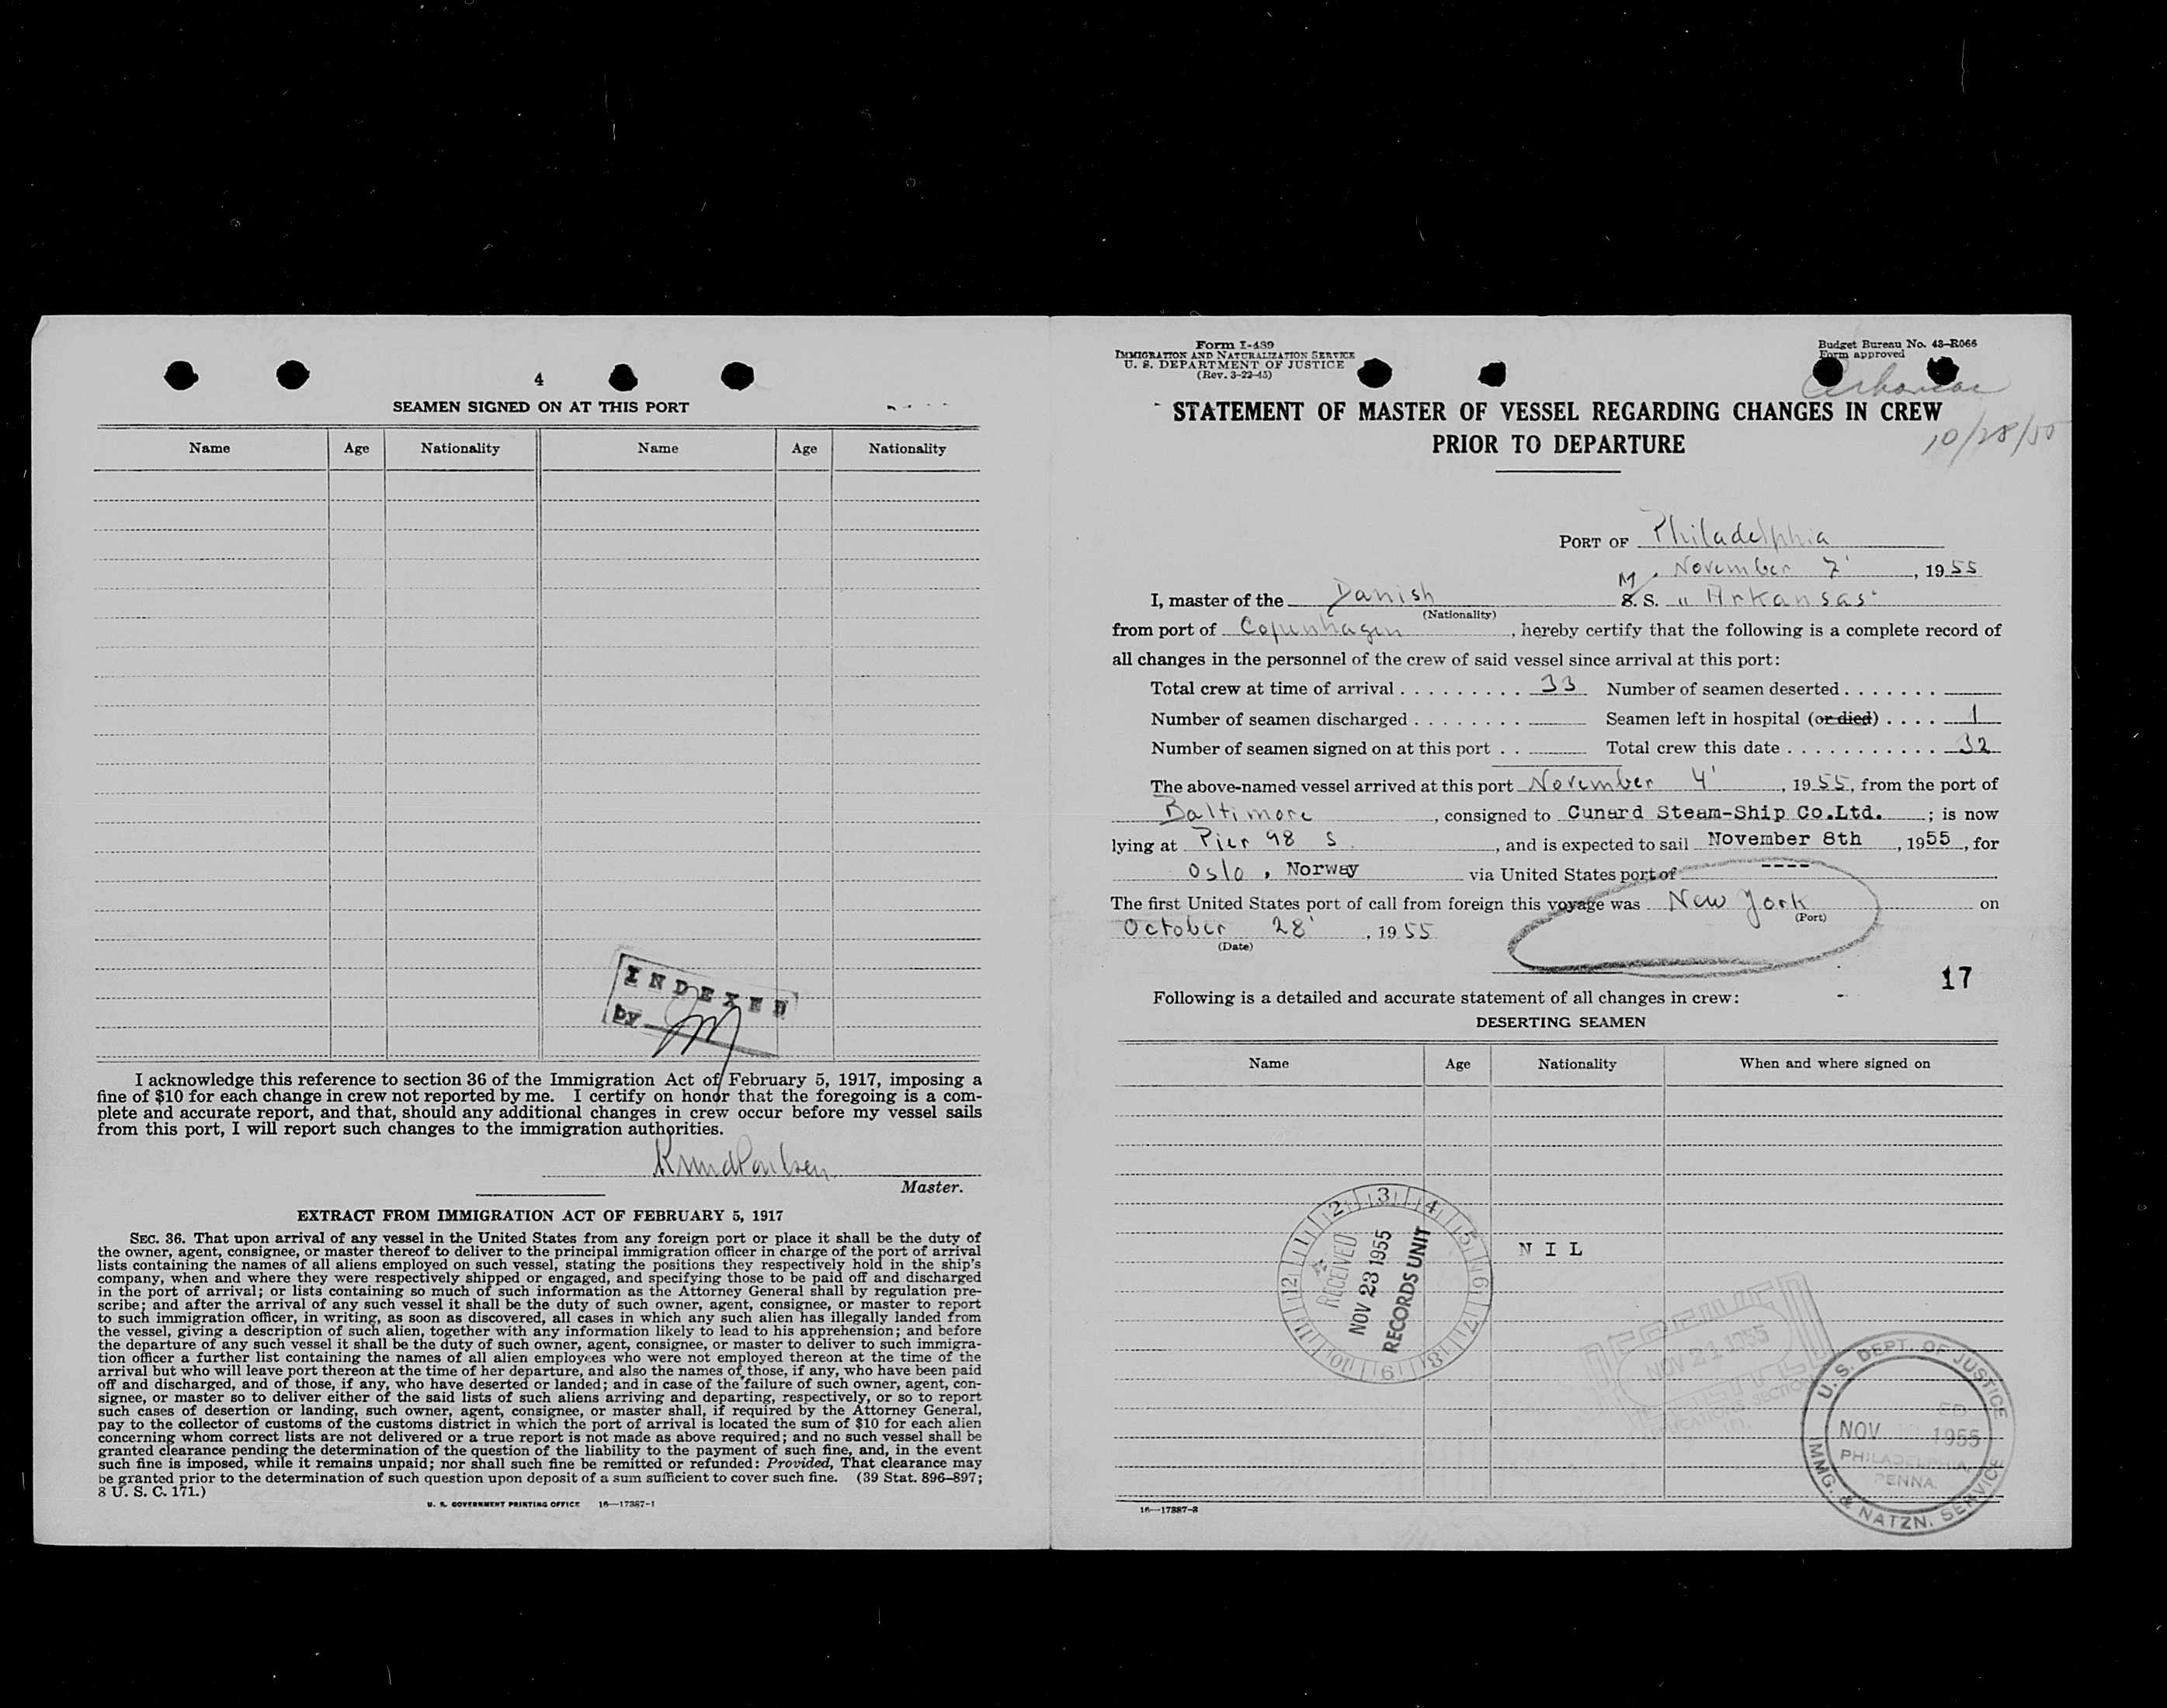 4
SEAMEN SIGNED ON AT THIS PORT
Name Age Nationality Name Age Nationality
INDEXED
by
I acknowledge this reference to section 36 of the Immigration Act of February 5, 1917, imposing a
fine of $10 for each change in crew not reported by me. I certify on honor that the foregoing is a com-
plete and accurate report, and that, should any additional changes in crew occur before my vessel sails
from this port, I will report such changes to the immigration authorities.
Knud Poulsen
Master.
EXTRACT FROM IMMIGRATION ACT OF FEBRUARY 5, 1917
SEC. 36. That upon arrival of any vessel in the United States from any foreign port or place it shall be the duty of
the owner, agent, consignee, or master thereof to deliver to the principal immigration officer in charge of the port of arrival
lists containing the names of all aliens employed on such vessel, stating the positions they respectively hold in the ship's
company, when and where they were respectively shipped or engaged, and specifying those to be paid off and discharged
in the port of arrival; or lists containing so much of such information as the Attorney General shall by regulation pre-
scribe; and after the arrival of any such vessel it shall be the duty of such owner, agent, consignee, or master to report
to such immigration officer, in writing, as soon as discovered, all cases in which any such alien has illegally landed from
the vessel, giving a description of such alien, together with any information likely to lead to his apprehension; and before
the departure of any such vessel it shall be the duty of such owner, agent, consignee, or master to deliver to such immigra-
tion officer a further list containing the names of all alien employees who were not employed thereon at the time of the
arrival but who will leave port thereon at the time of her departure, and also the names of those, if any, who have been paid
off and discharged, and of those, if any, who have deserted or landed; and in case of the failure of such owner, agent, con-
signee, or master so to deliver either of the said lists of such aliens arriving and departing, respectively, or so to report
such cases of desertion or landing, such owner, agent, consignee, or master shall, if required by the Attorney General,
pay to the collector of customs of the customs district in which the port of arrival is located the sum of $10 for each alien
concerning whom correct lists are not delivered or a true report is not made as above required; and no such vessel shall be
granted clearance pending the determination of the question of the liability to the payment of such fine, and, in the event
such fine is imposed, while it remains unpaid; nor shall such fine be remitted or refunded: Provided, That clearance may
be granted prior to the determination of such question upon deposit of a sum sufficient to cover such fine. (39 Stat. 896–897;
8 U. S. C. 171.)
U. S. GOVERNMENT PRINTING OFFICE 16—17387-1
Form I-489
IMMIGRATION AND NATURALIZATION SERVICE
U. S. DEPARTMENT OF JUSTICE
(Rev. 3-22-45)
Budget Bureau No. 43–R066
Form approved
Arkansas
STATEMENT OF MASTER OF VESSEL REGARDING CHANGES IN CREW
PRIOR TO DEPARTURE
10/28/55
PORT OF Philadelphia
November 7', 1955
I, master of the Danish M. S. S. "Arkansas"
(Nationality)
from port of Copenhagen, hereby certify that the following is a complete record of
all changes in the personnel of the crew of said vessel since arrival at this port:
Total crew at time of arrival . . . . . . . . . 33 Number of seamen deserted . . . . . . .
Number of seamen discharged . . . . . . . . Seamen left in hospital (or died) . . . . 1
Number of seamen signed on at this port . . Total crew this date . . . . . . . . . . . 32
The above-named vessel arrived at this port November 4', 1955, from the port of
Baltimore, consigned to Cunard Steam-Ship Co.Ltd. ; is now
lying at Pier 98 S, and is expected to sail November 8th, 1955, for
Oslo, Norway via United States port of ----
The first United States port of call from foreign this voyage was New York on
(Port)
October 28', 1955
(Date)
17
Following is a detailed and accurate statement of all changes in crew:
DESERTING SEAMEN
Name Age Nationality When and where signed on
NIL
1 2 3 4 5 6 7 8 9 10 11 12
RECEIVED
NOV 23 1955
RECORDS UNIT
RECEIVED
NOV 21 1955
SECTION
U. S. DEPT. OF JUSTICE
NOV 1955
PHILADELPHIA,
PENNA.
IMMG. & NATZN. SERVICE
16—17387-3